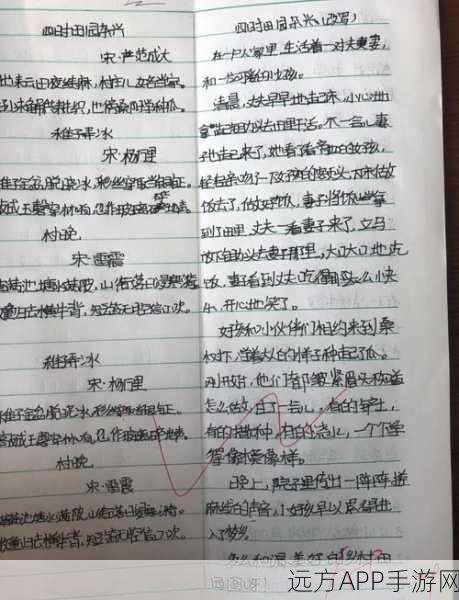 四时田园杂兴
宋·范成大
出耘田夜绩麻，村庄儿女各当家。
未解供耕织，也傍桑阴学种瓜。
稚子弄冰
宋·杨万里
稚子金盆脱晓冰，彩丝穿取当银钲。
敲成玉磬穿林响，忽作玻璃碎地声。
村晚
宋·雷震
草满池塘水满陂，山衔落日浸寒漪。
牧童归去横牛背，短笛无腔信口吹。
稚子弄冰
宋·杨万里
稚子金盆脱晓冰，彩丝穿取当银钲。
敲成玉磬穿林响，忽作玻璃碎地声。
村晚
宋·雷震
草满池塘水满陂，山衔落日浸寒漪。
牧童归去横牛背，短笛无腔信口吹。
四时田园杂兴(改写)
在一户人家里，生活着一对夫妻，
和一位可爱的小孩。
清晨，丈夫早早地起床，小心地
去田里干活。不一会儿，妻
子也起来了，她看了看旁边的女孩，
轻轻亲吻了一下孩子的额头，大米做
饭去了，做好早饭，妻子
到了田里，丈夫一看妻子来了，立马
妻子那里，大口大口地吃
饭，妻子看到丈夫吃得那么快
乐，开心地笑了。
女孩和小伙伴们相约来到桑
树下，学着大人的样子种起了瓜。
刚开始，他们都皱紧眉头
怎么做，过了一会儿，有的铲土，
有的播种，有的浇水，一个个学
得像模像样。
晚上，院子里传出一阵阵搓
麻线的声音，小女孩早以
入了梦乡。
多么和谐、美好的乡村田
园图呀！
远方APP手游网